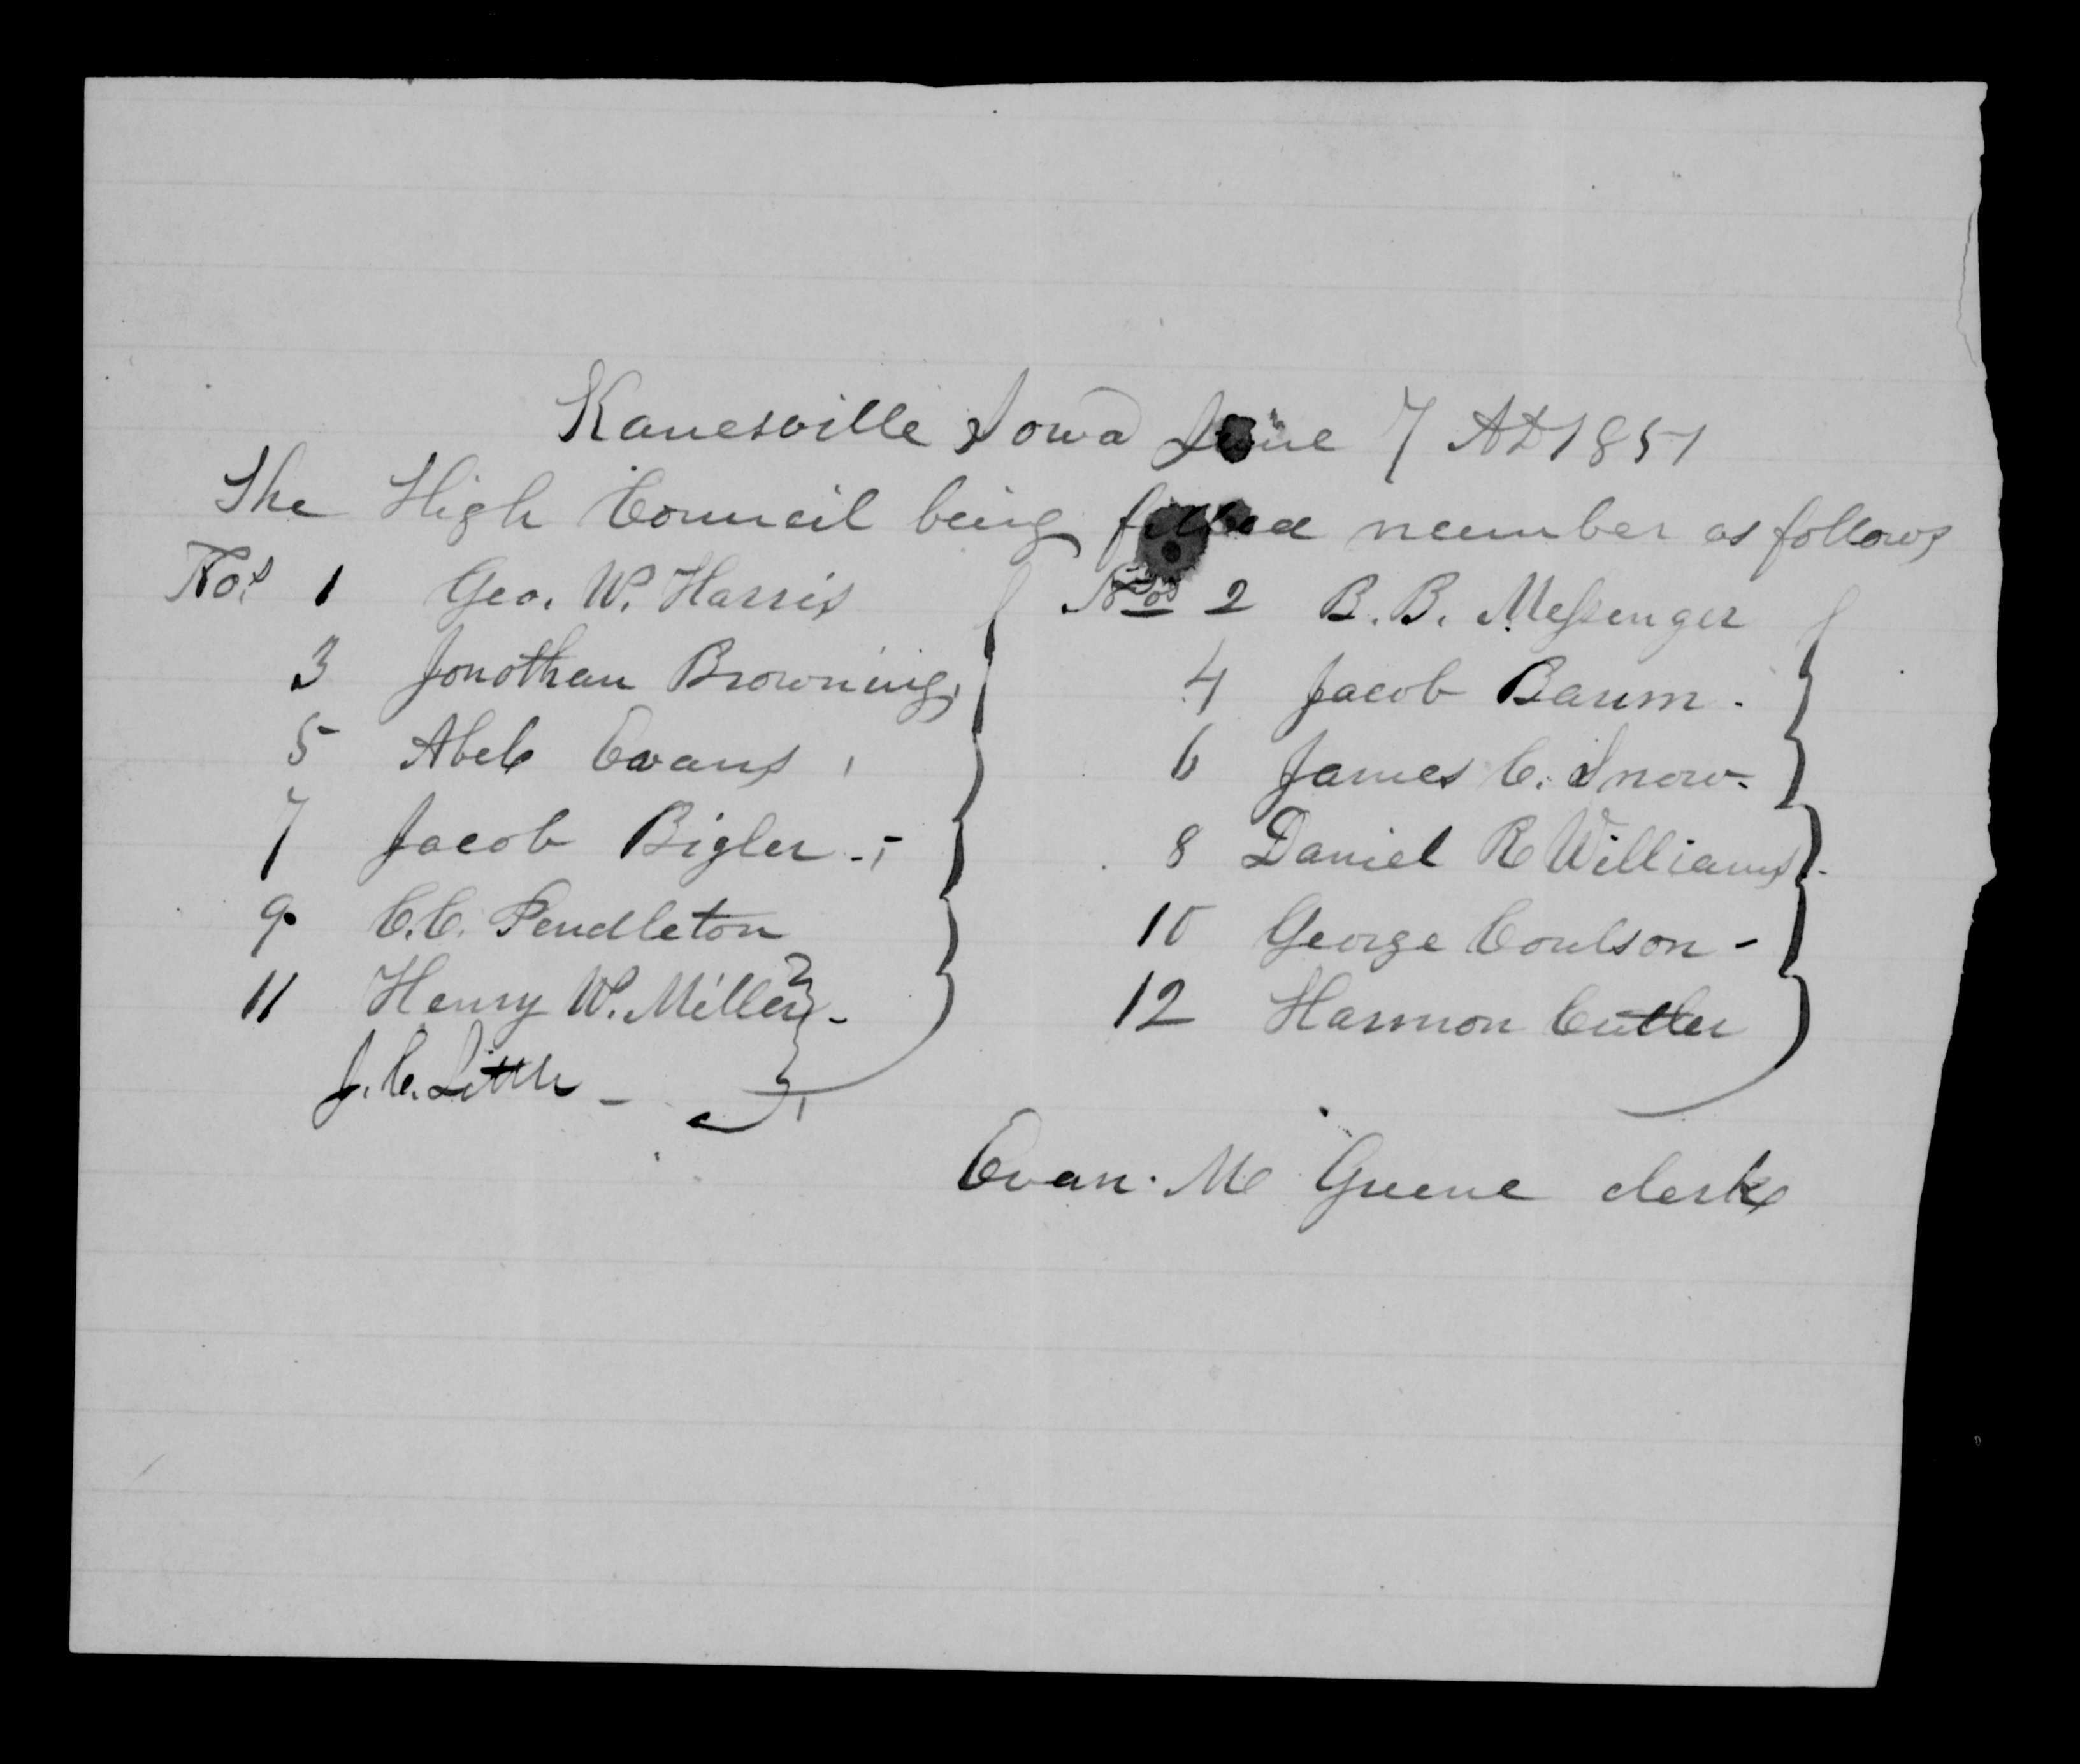 Kanesville Iowa June 7 AD 1851
The High Council being filled number as follows
Nos 1 Geo. W. Harris Nos 2 B. B. Messenger
3 Jonothan Browning, 4 Jacob Baum -
5 Abel Evans, 6 James C. Snow -
7 Jacob Bigler - 8 Daniel R Williams -
9 C. C. Pendleton 10 George Coulson -
11 Henry W. Miller - 12 Harmon Cutler
J. C. Little -
Evan. M Greene clerk